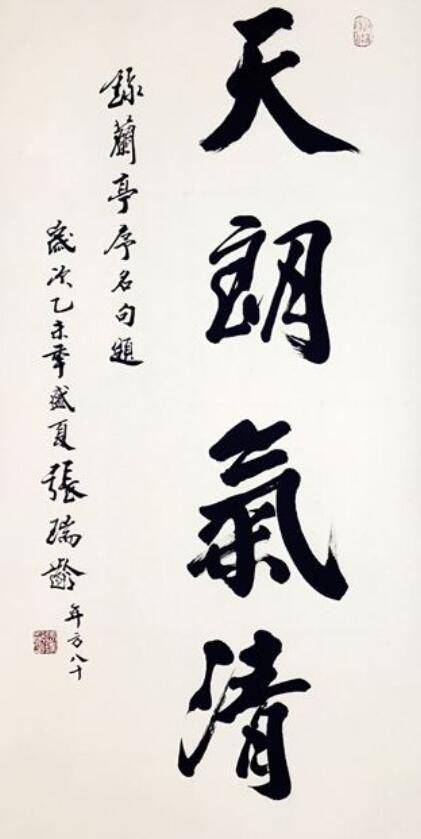 天朗氣清
錄蘭亭序名句題
歲次乙未年盛夏張瑞齡年方八十